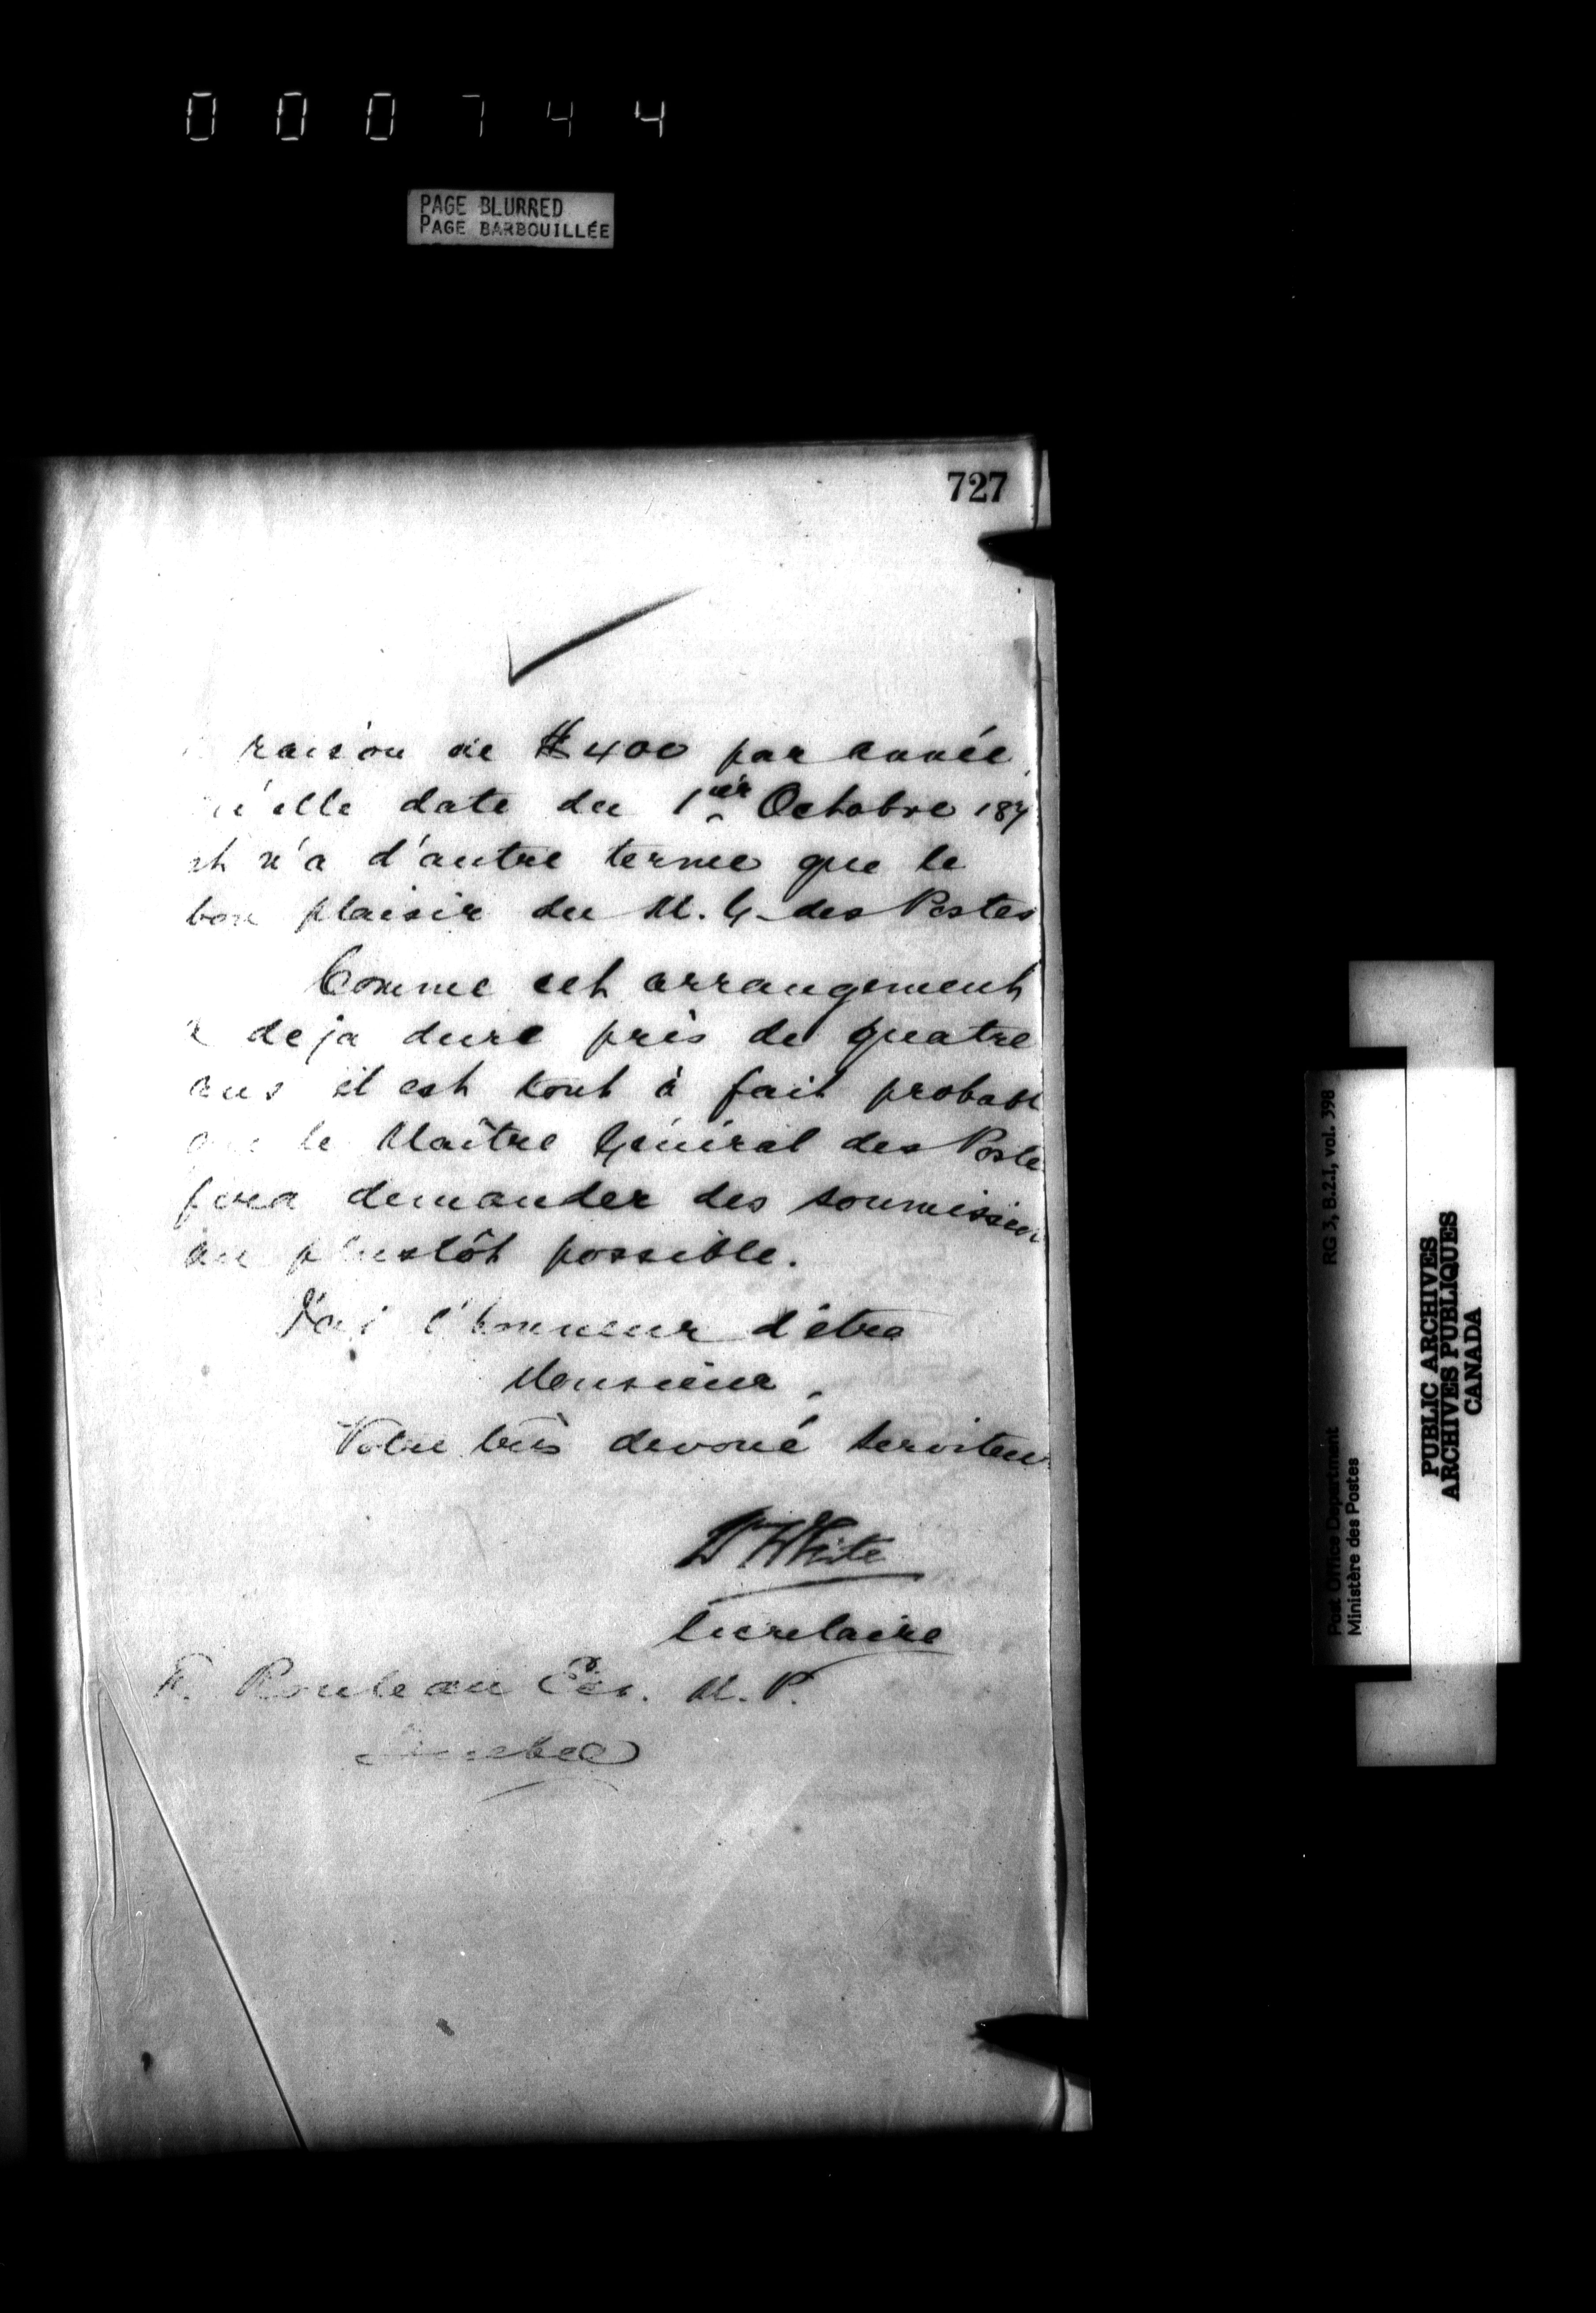 000744
PAGE BLURRED
PAGE BARBOUILLÉE
727
raison de $400 par année,
qu'elle date du 1er Octobre 187
et n'a d'autre terme que le
bon plaisir du M. G. des Postes
Comme cet arrangement
a deja duré près de quatre
ans il est tout à fait probabl
que le Maître Général des Poste
fera demander des soumission
au plustôt possible.
J'ai l'honneur d'être
Monsieur,
Votre très devoué serviteur
W White
Secretaire
F. Rouleau Esq. M. P.
Quebec
RG 3, B.2.1, vol. 398
Post Office Department
Ministère des Postes
PUBLIC ARCHIVES
ARCHIVES PUBLIQUES
CANADA